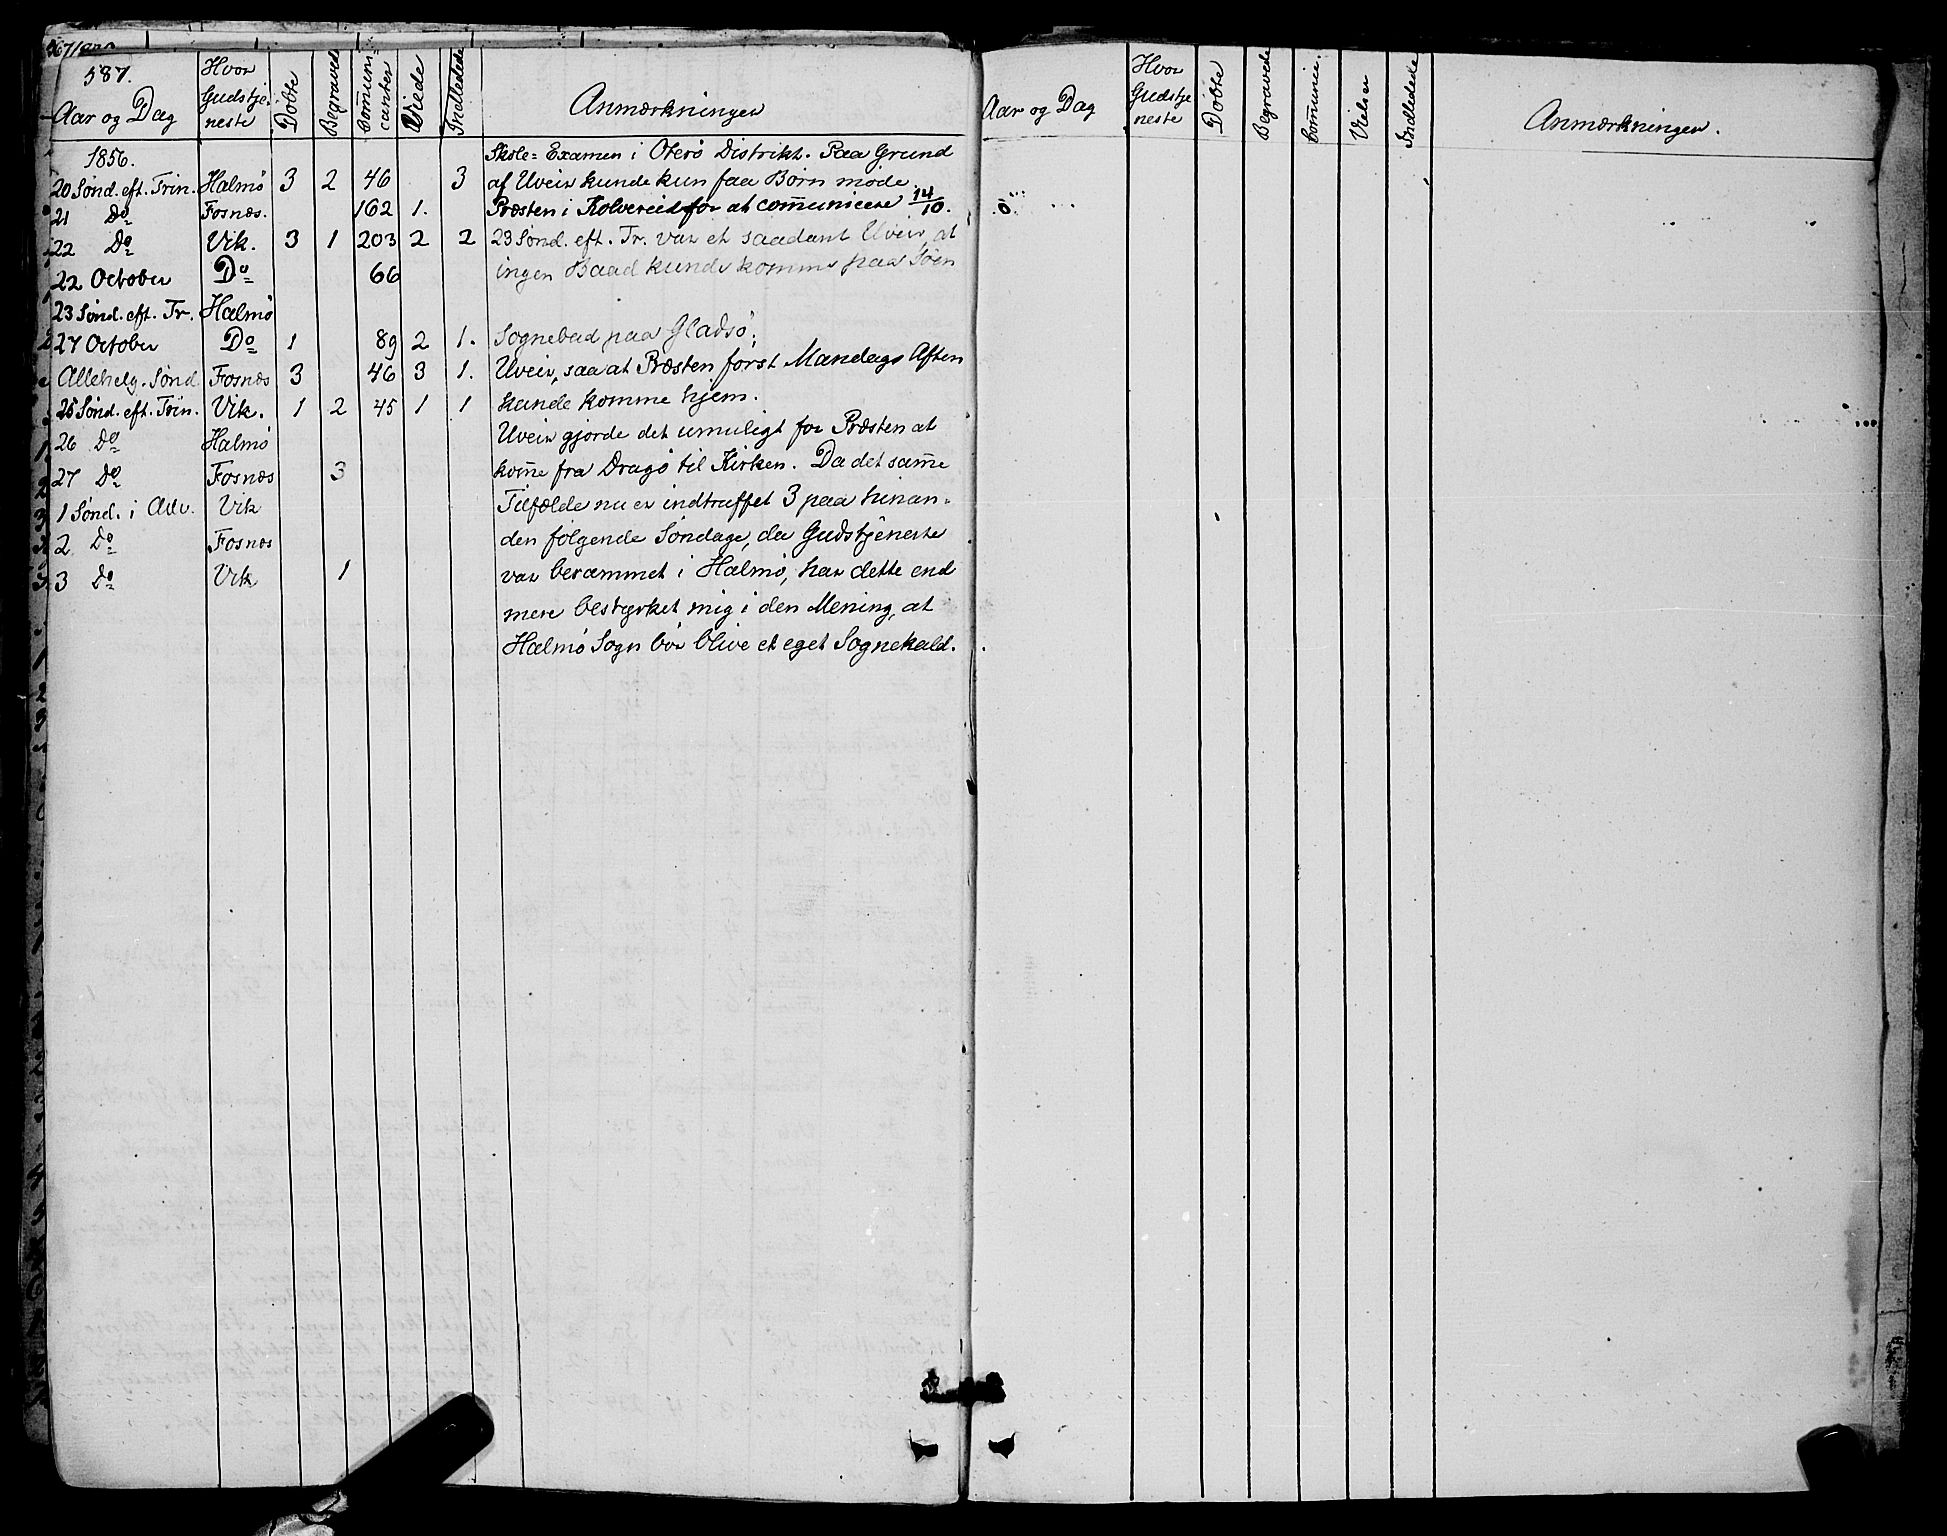 587.
Aar og Dag | Hvor Gudstje- neste | Døbte | Begravede | Com̄uni- canter | Viede | Indledede | Anmærkninger
1856. | Skole=Examen i Oterø Distrikt. Paa Grund
20 Sønd. eft. Trin. | Halmø | 3 | 2 | 46 | | 3 | af Uveir kunde kun faa Børn møde.
21 Do | Fosnæs. | | | 162 | 1. | | Præsten i Kolvereid for at com̄unicere 14/10.
22 Do | Vik. | 3 | 1 | 203 | 2 | 2 | 23 Sønd. eft. Tr. var et saadant Uveir, at
22 October | Do | | | 66 | | | ingen Baad kunde komme paa Søen
23 Sønd. eft. Tr. | Halmø
27 October | Do | 1 | | 89 | 2 | 1. | Sognebud paa Gladsø;
Allehelg. Sønd. | Fosnæs | 3 | | 46 | 3 | 1. | Uveir, saa at Præsten først Mandags Aften
25 Sønd. eft. Trin. | Vik. | 1 | 2 | 45 | 1 | 1 | kunde komme hjem.
26 Do | Halmø | | | | | | Uveir gjorde det umuligt for Præsten at
27 Do | Fosnæs | | 3 | | | | kom̄e fra Dragø til Kirken. Da det sam̄e
1 Sønd. i Adv. | Vik | | | | | | Tilfælde nu er indtruffet 3 paa hinan-
2 Do | Fosnæs | | | | | | den følgende Søndage, da Gudstjeneste
3 Do | Vik | | 1 | | | | var berammet i Halmø, har dette end
mere bestyrket mig i den Mening, at
Halmø Sogn bør blive et eget Sognekald.
Aar og Dag | Hvor Gudstje neste | Døbte | Begravede | Com̄unic. | Vielser | Indledede | Anmærkninger.